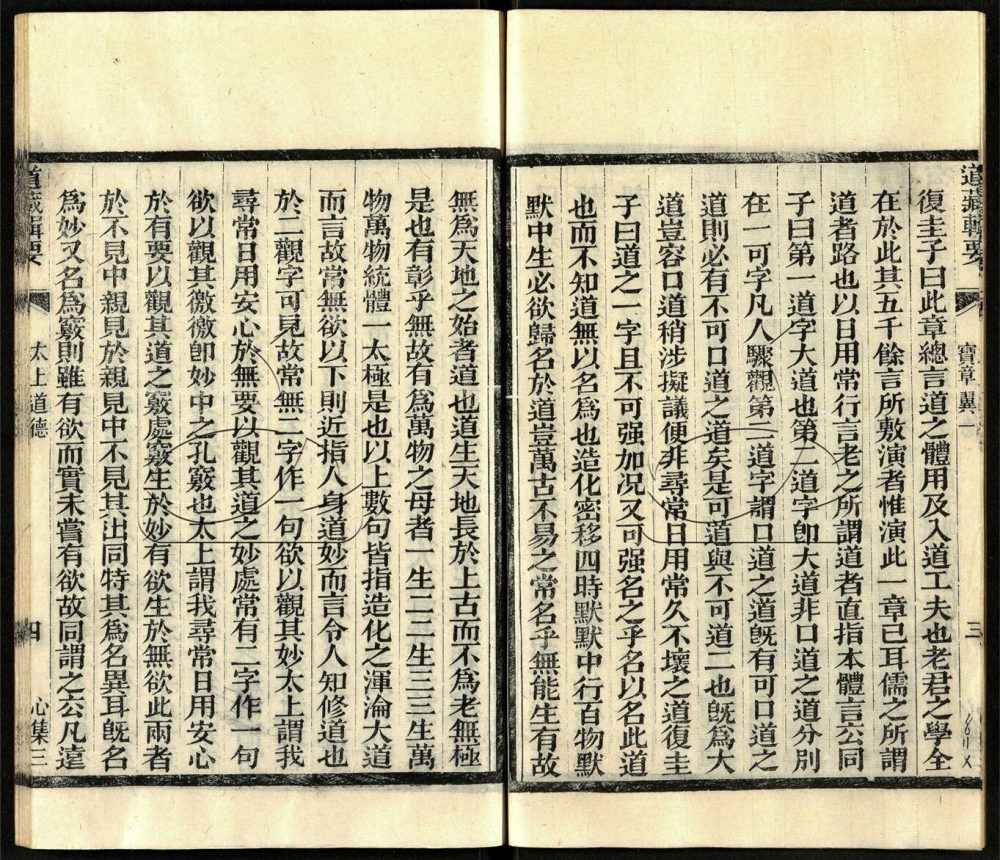 道藏輯要
寶章翼一
三
復圭子曰此章總言道之體用及入道工夫也老君之學全
在於此其五千餘言所敷演者惟演此一章已耳儒之所謂
道者路也以日用常行言老之所謂道者直指本體言公同
子曰第一道字大道也第二道字卽大道非口道之道分別
在一可字凡人驟觀第二道字謂口道之道旣有可口道之
道則必有不可口道之道矣是可道與不可道二也旣為大
道豈容口道稍涉擬議便非尋常日用常久不壞之道復圭
子曰道之一字且不可强加况又可强名之乎名以名此道
也而不知道無以名為也造化密移四時默默中行百物默
默中生必欲歸名於道豈萬古不易之常名乎無能生有故
無為天地之始者道也道生天地長於上古而不為老無極
是也有彰乎無故有為萬物之母者一生二二生三三生萬
物萬物統體一太極是也以上數句皆指造化之渾淪大道
而言故常無欲以下則近指人身道妙而言令人知修道也
於二觀字可見故常無二字作一句欲以觀其妙太上謂我
尋常日用安心於無要以觀其道之妙處常有二字作一句
欲以觀其徼徼卽妙中之孔竅也太上謂我尋常日用安心
於有要以觀其道之竅處竅生於妙有欲生於無欲此兩者
於不見中親見於親見中不見其出同特其為名異耳旣名
為妙又名為竅則雖有欲而實未嘗有欲故同謂之公凡遠
道藏輯要
太上道德
四
心集三